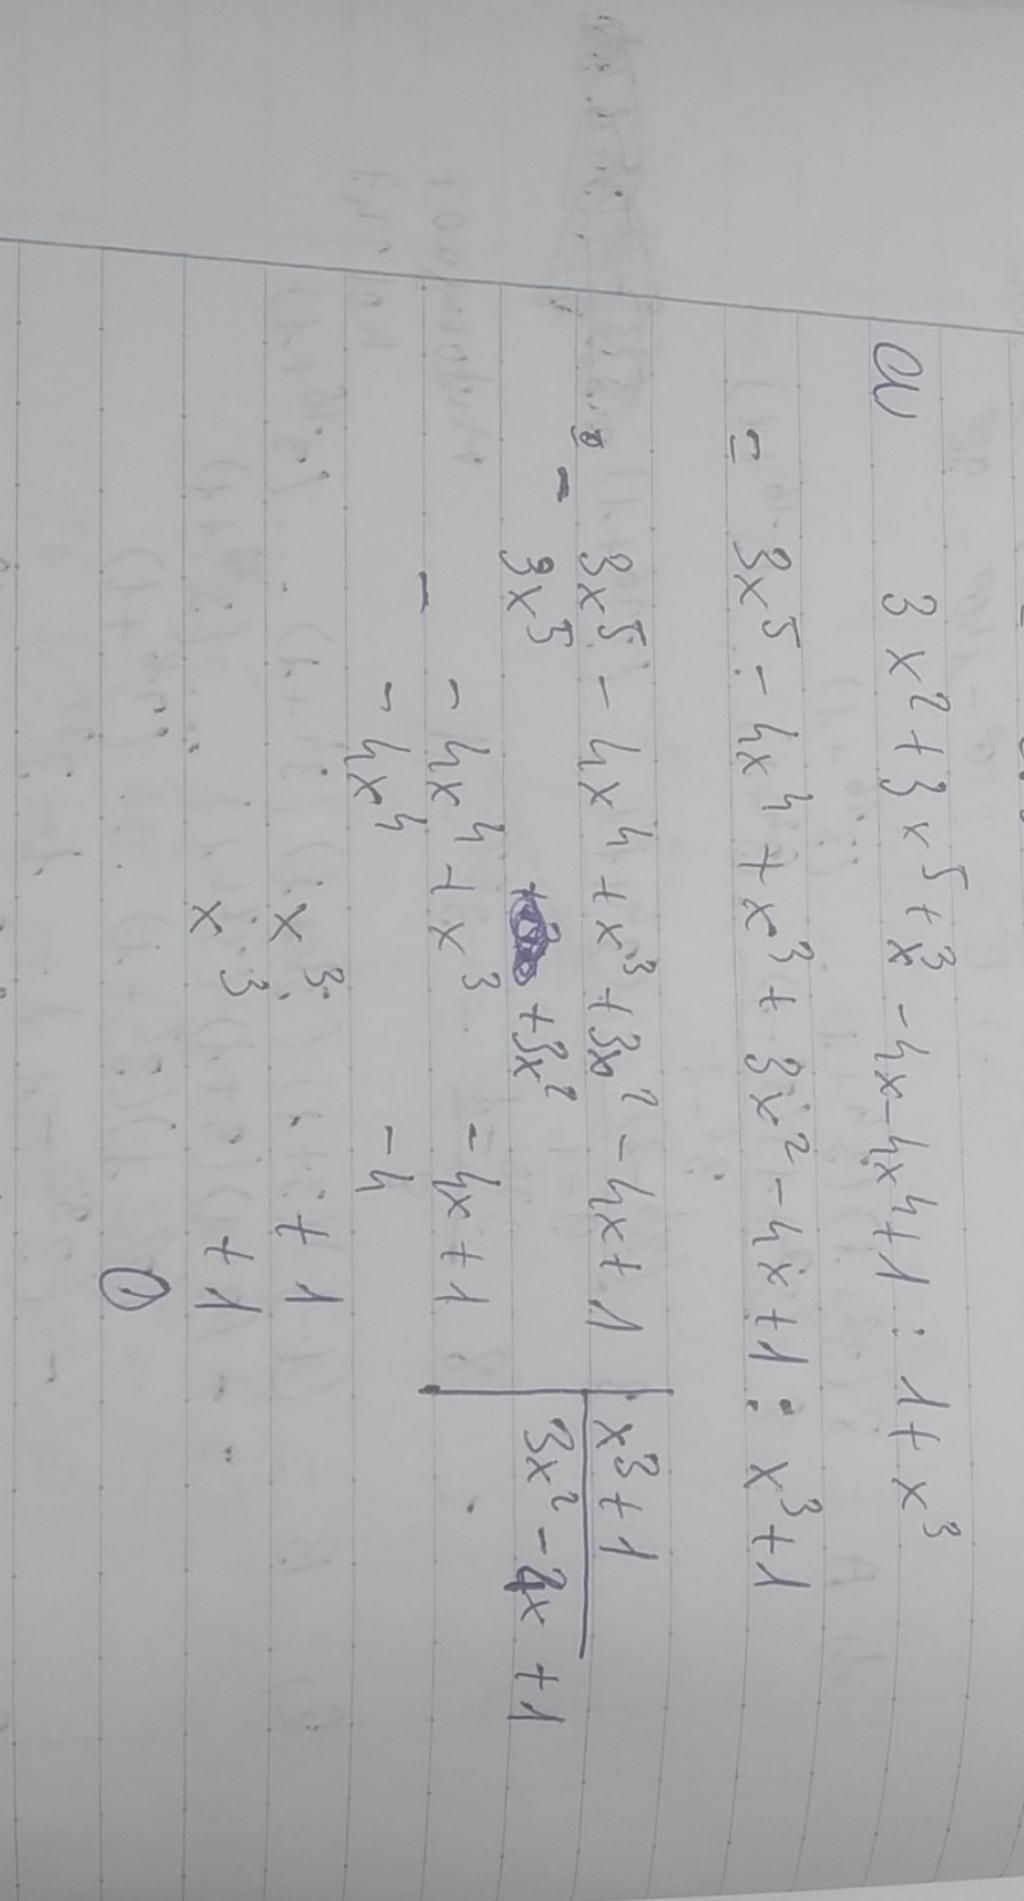 a) 3x² + 3x⁵ + x³ - 4x - 4x⁴ + 1 : 1 + x³
= 3x⁵ - 4x⁴ + x³ + 3x² - 4x + 1 : x³ + 1
3x⁵ - 4x⁴ + x³ + 3x² - 4x + 1 | x³ + 1
- 3x⁵ + 3x² | 3x² - 4x + 1
- 4x⁴ + x³ - 4x + 1
- - 4x⁴ - 4
x³ + 1
x³ + 1
0